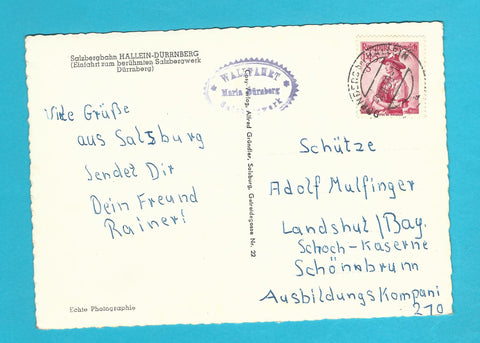 Salzbergbahn HALLEIN-DÜRRNBERG
(Einfahrt zum berühmten Salzbergwerk
Dürrnberg)
WALLFAHRT
Maria Dürnberg
Viele Grüße
aus Salzburg
sendet Dir
Dein Freund
Rainer!
Echte Photographie
Cosy-Verlag, Alfred Gründler, Salzburg, Getreidegasse Nr. 22
Republik Österreich
Schütze
Adolf Mulfinger
Landshut/Bay.
Schoch-Kaserne
Schönnbrunn
Ausbildungskompani
210